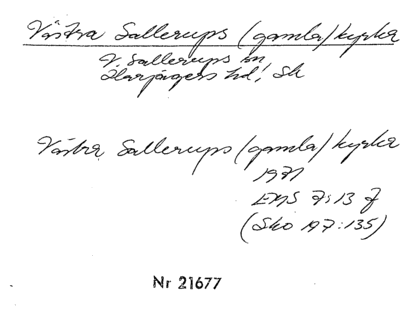 Västra Sallerups (gamla) kyrka
V. Sallerups sn
Harjagers hd, Sk
Västra Sallerups (gamla) kyrka
1971
EMS 7:13 f
(Sko 197:135)
Nr 21677